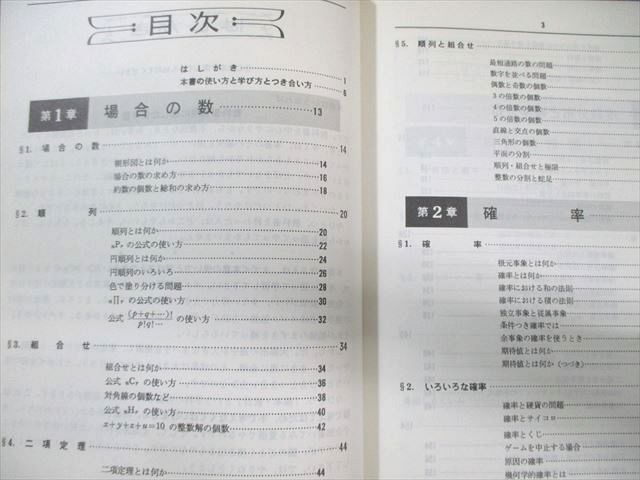 目次
はしがき 1
本書の使い方と学び方とつき合い方 6
第1章 場合の数 13
§1. 場合の数 14
樹形図とは何か 14
場合の数の求め方 16
約数の個数と総和の求め方 18
§2. 順列 20
順列とは何か 20
nPr の公式の使い方 22
円順列とは何か 24
円順列のいろいろ 26
色で塗り分ける問題 28
n∏r の公式の使い方 30
公式 (p+q+…)!/p!q!… の使い方 32
§3. 組合せ 34
組合せとは何か 34
公式 nCr の使い方 36
対角線の個数など 38
公式 nHr の使い方 40
x+y+z+u=10 の整数解の個数 42
§4. 二項定理 44
二項定理とは何か 44
3
§5. 順列と組合せ
最短通路の数の問題
数字を並べる問題
偶数と奇数の個数
3の倍数の個数
4の倍数の個数
5の倍数の個数
直線と交点の個数
三角形の個数
平面の分割
順列・組合せと極限
整数の分割と蛇足
第2章 確率
§1. 確率
根元事象とは何か
確率とは何か
確率における和の法則
確率における積の法則
独立事象と従属事象
条件つき確率では
余事象の確率を使うとき
期待値とは何か
期待値とは何か（つづき）
§2. いろいろな確率
確率と硬貨の問題
確率とサイコロ
確率とくじ
ゲームを中止する場合
原因の確率
幾何学的確率とは